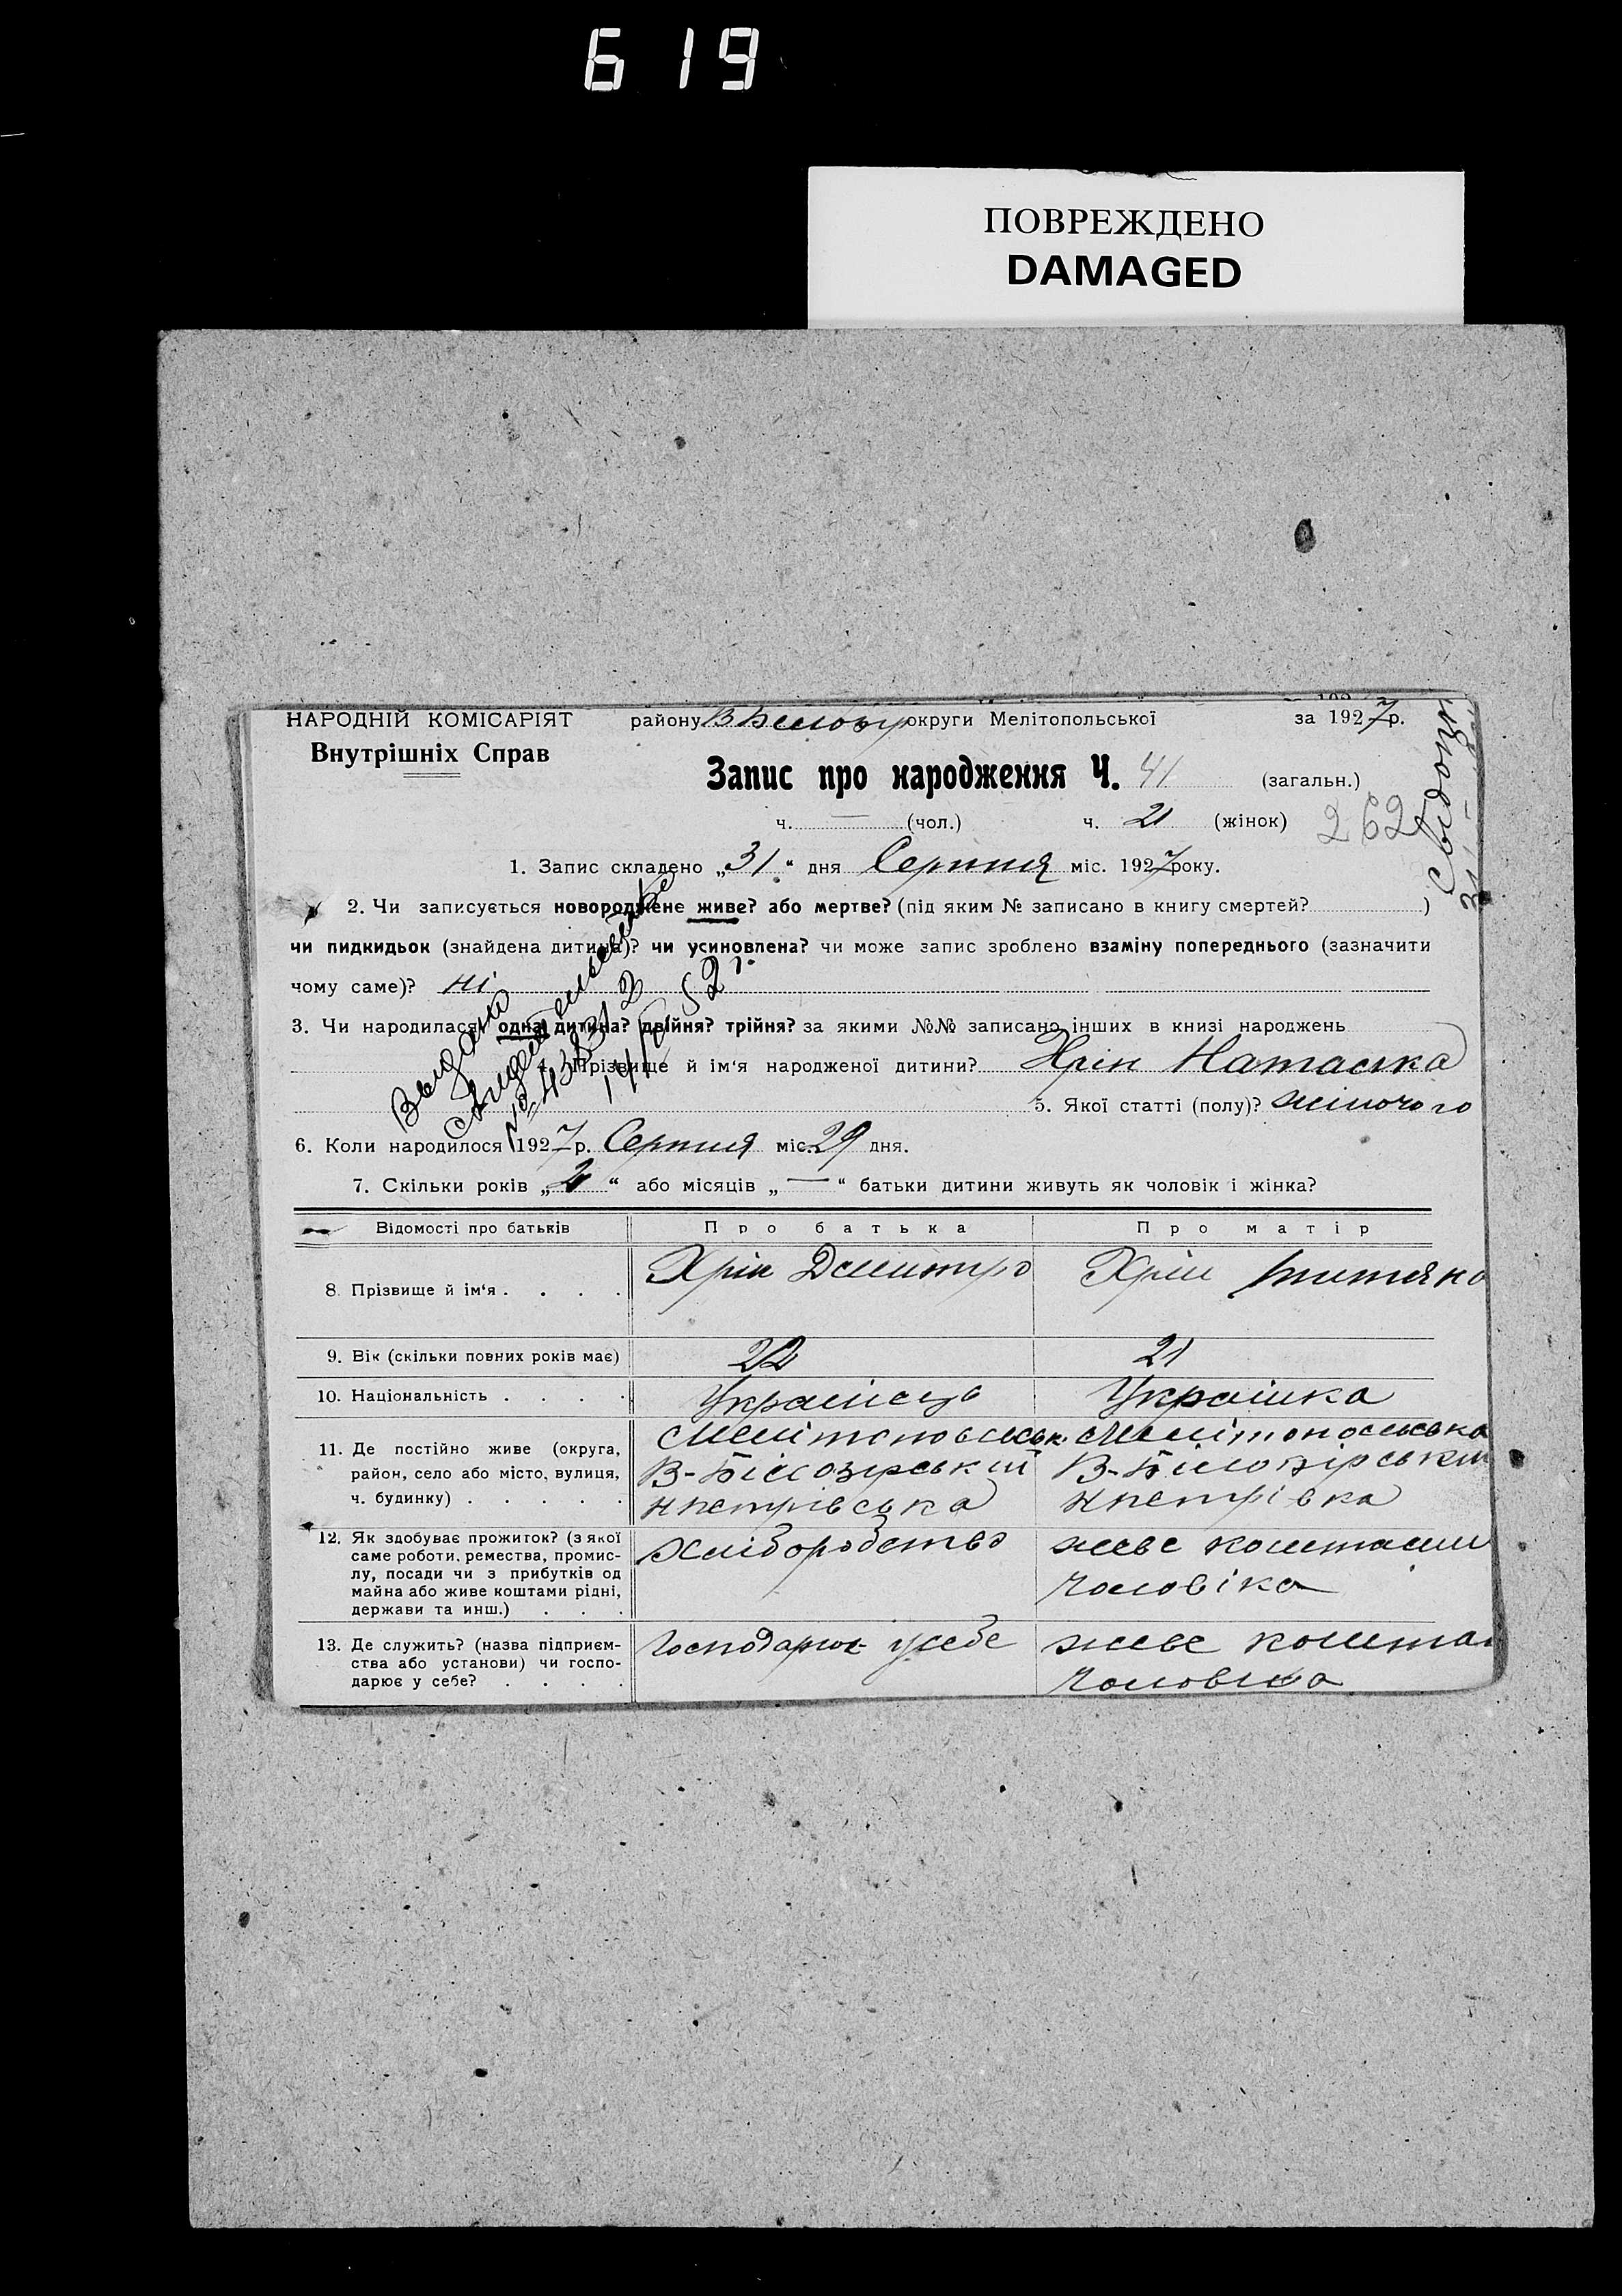 619
ПОВРЕЖДЕНО
DAMAGED
НАРОДНІЙ КОМІСАРІЯТ району округи Мелітопольської за 1927р.
Внутрішніх Справ
Запис про народження Ч. 41 (загальн.)
ч. — (чол.) ч. 21 (жінок) 262
1. Запис складено „31“ дня Серпня міс. 1927 року.
2. Чи записується новороджене живе? або мертве? (під яким № записано в книгу смертей? )
чи пидкидьок (знайдена дитина)? чи усиновлена? чи може запис зроблено взаміну попереднього (зазначити
чому саме)? ні
3. Чи народилася одна дитина? двійня? трійня? за якими №№ записано інших в книзі народжень
4. Прізвище й ім'я народженої дитини? Хрін Наташка
5. Якої статті (полу)? жіночого
6. Коли народилося 1927 р. Серпня міс. 29 дня.
7. Скільки років „2“ або місяців „—“ батьки дитини живуть як чоловік і жінка?
Выдано
свидетельство
Відомості про батьків Про батька Про матір
8. Прізвище й ім'я . . . . Хрін Дмитро Хрін
9. Вік (скільки повних років має) 22 21
10. Національність . . . . Українець Українка
11. Де постійно живе (округа, Мелітопольськ. Мелітопольська
район, село або місто, вулиця, В-Білозірський В-Білозірський
ч. будинку) . . . . .
12. Як здобуває прожиток? (з якої хліборобство живе коштами
саме роботи, ремества, промис-
лу, посади чи з прибутків од чоловіка
майна або живе коштами рідні,
держави та инш.) . . .
13. Де служить? (назва підприєм- Господарює у себе живе кошта
ства або установи) чи госпо- чоловіка
дарює у себе? . . . .